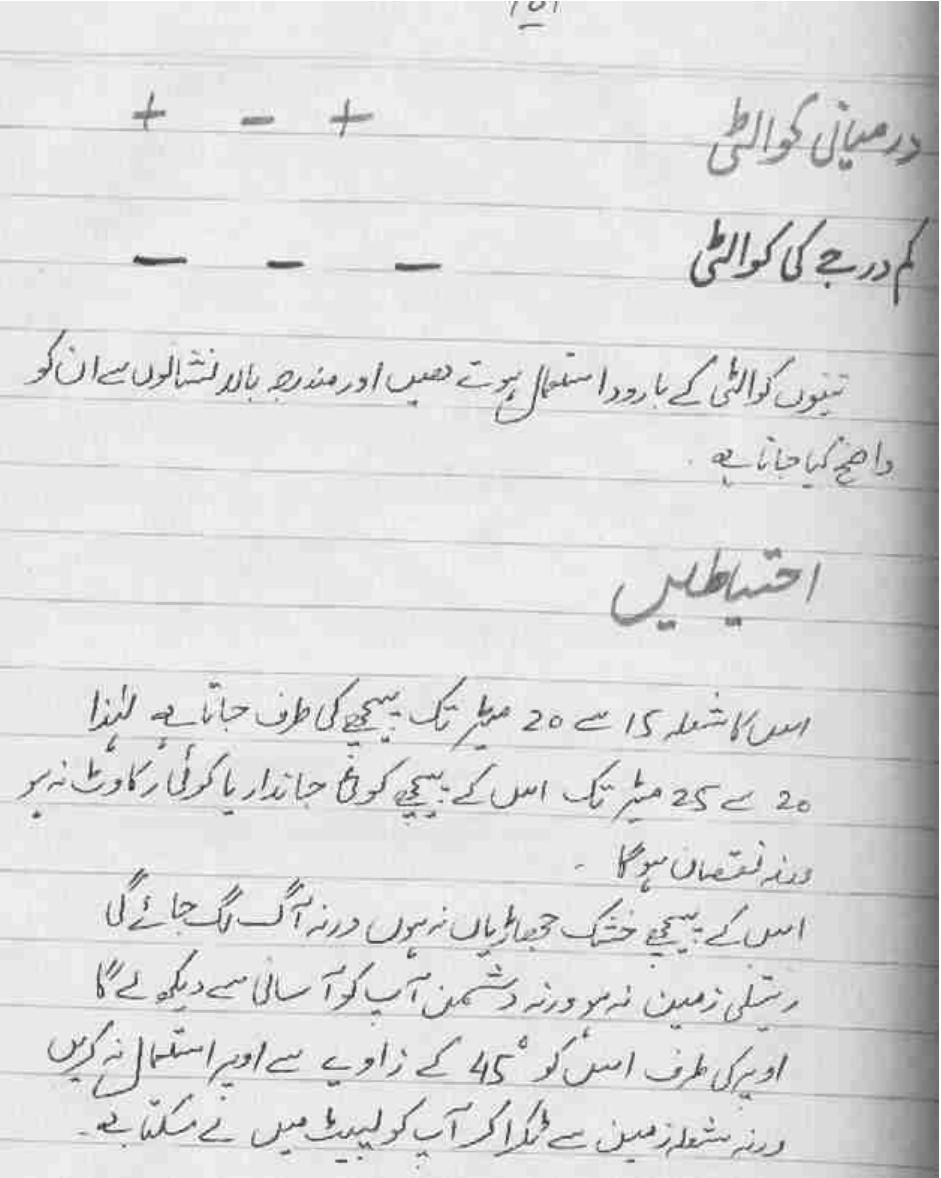 درمیانی کوالٹی + - +
کم درجے کی کوالٹی - - -
تینوں کوالٹی کے بارود استعمال ہوتے ھیں اور مندرجہ بالا نشانوں سے ان کو
واضح کیا جاتا ہے۔
احتیاطیں
اس کا شعلہ 15 سے 20 میٹر تک پیچھے کی طرف جاتا ہے لہٰذا
20 سے 25 میٹر تک اس کے پیچھے کوئی جاندار یا کوئی رکاوٹ نہ ہو
ورنہ نقصان ہوگا ۔
اس کے پیچھے خشک جھاڑیاں نہ ہوں ورنہ آگ لگ جائے گی
ریتلی زمین نہ ہو ورنہ دشمن آپ کو آسانی سے دیکھ لے گا
اوپر کی طرف اس کو 45° کے زاویے سے اوپر استعمال نہ کریں
ورنہ شعلہ زمین سے ٹکرا کر آپ کو لپیٹ میں لے سکتا ہے۔